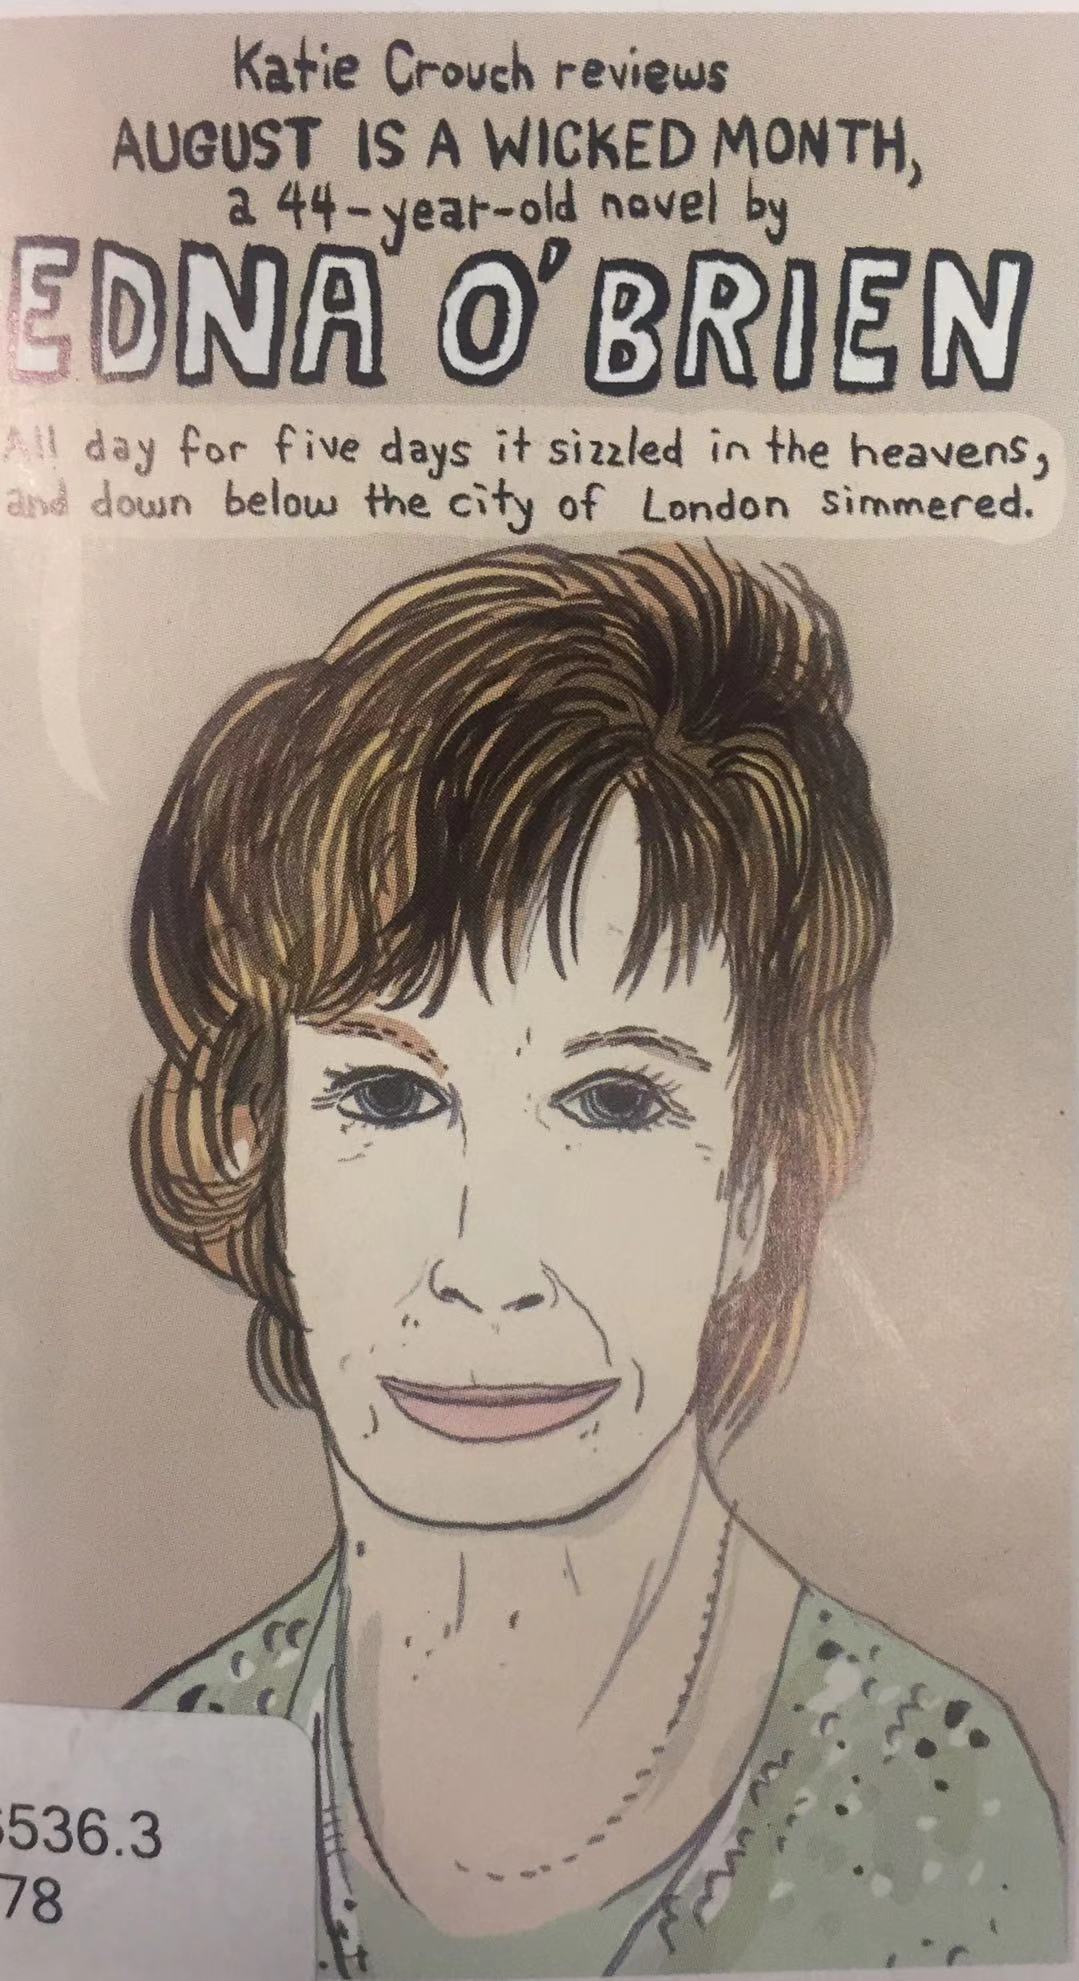 Katie Crouch reviews
AUGUST IS A WICKED MONTH,
a 44-year-old novel by
EDNA O'BRIEN
All day for five days it sizzled in the heavens,
and down below the city of London simmered.
536.3
78